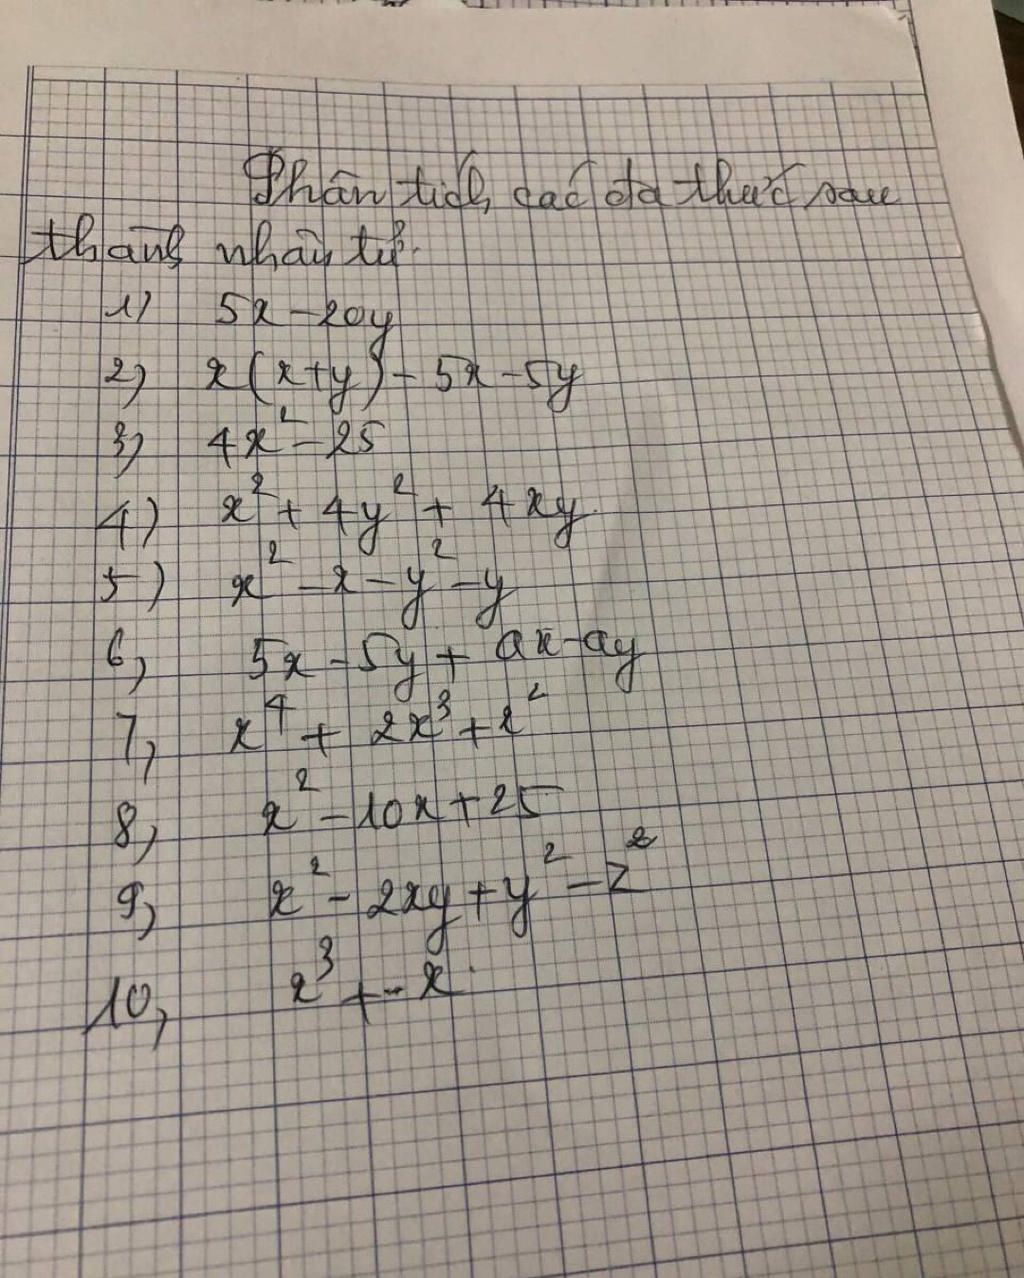 Phân tích các đa thức sau
thành nhân tử.
1) 5x - 20y
2) x(x+y) - 5x - 5y
3) 4x² - 25
4) x² + 4y² + 4xy
5) x² - x - y² - y
6, 5x - 5y + ax - ay
7, x⁴ + 2x³ + x²
8, x² - 10x + 25
9, x² - 2xy + y² - z²
10, x³ + - x